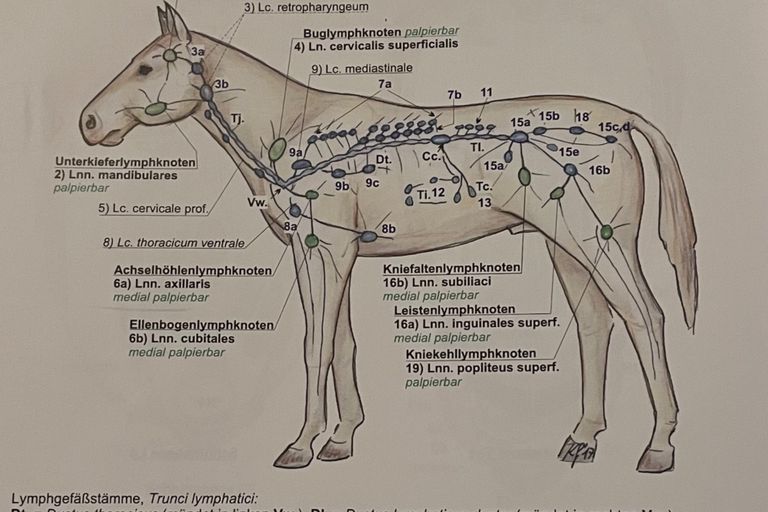 3) Lc. retropharyngeum
Buglymphknoten palpierbar
4) Ln. cervicalis superficialis
9) Lc. mediastinale
3a
3b
7a
7b
11
Tj.
15a
15b
18
15c,d
15e
16b
9a
Dt.
Cc.
Tl.
15a
9b
9c
Ti.
12
Tc.
13
Unterkieferlymphknoten
2) Lnn. mandibulares
palpierbar
5) Lc. cervicale prof.
Vw.
8a
8b
8) Lc. thoracicum ventrale
Achselhöhlenlymphknoten
6a) Lnn. axillaris
medial palpierbar
Ellenbogenlymphknoten
6b) Lnn. cubitales
medial palpierbar
Kniefaltenlymphknoten
16b) Lnn. subiliaci
medial palpierbar
Leistenlymphknoten
16a) Lnn. inguinales superf.
medial palpierbar
Kniekehllymphknoten
19) Lnn. popliteus superf.
palpierbar
Lymphgefäßstämme, Trunci lymphatici: